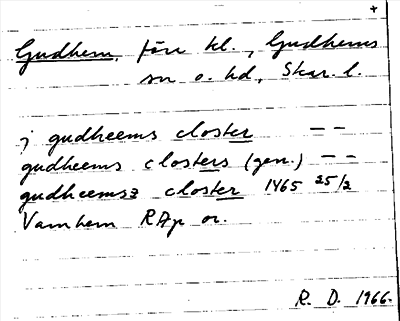 +
Gudhem, förr kl., Gudhems
sn o. hd, Skar. l.
j gudheems closter — —
gudheems closters (gen.) — —
gudheemsz closter 1465 25/2
Varnhem RAp or.
R. D. 1966.